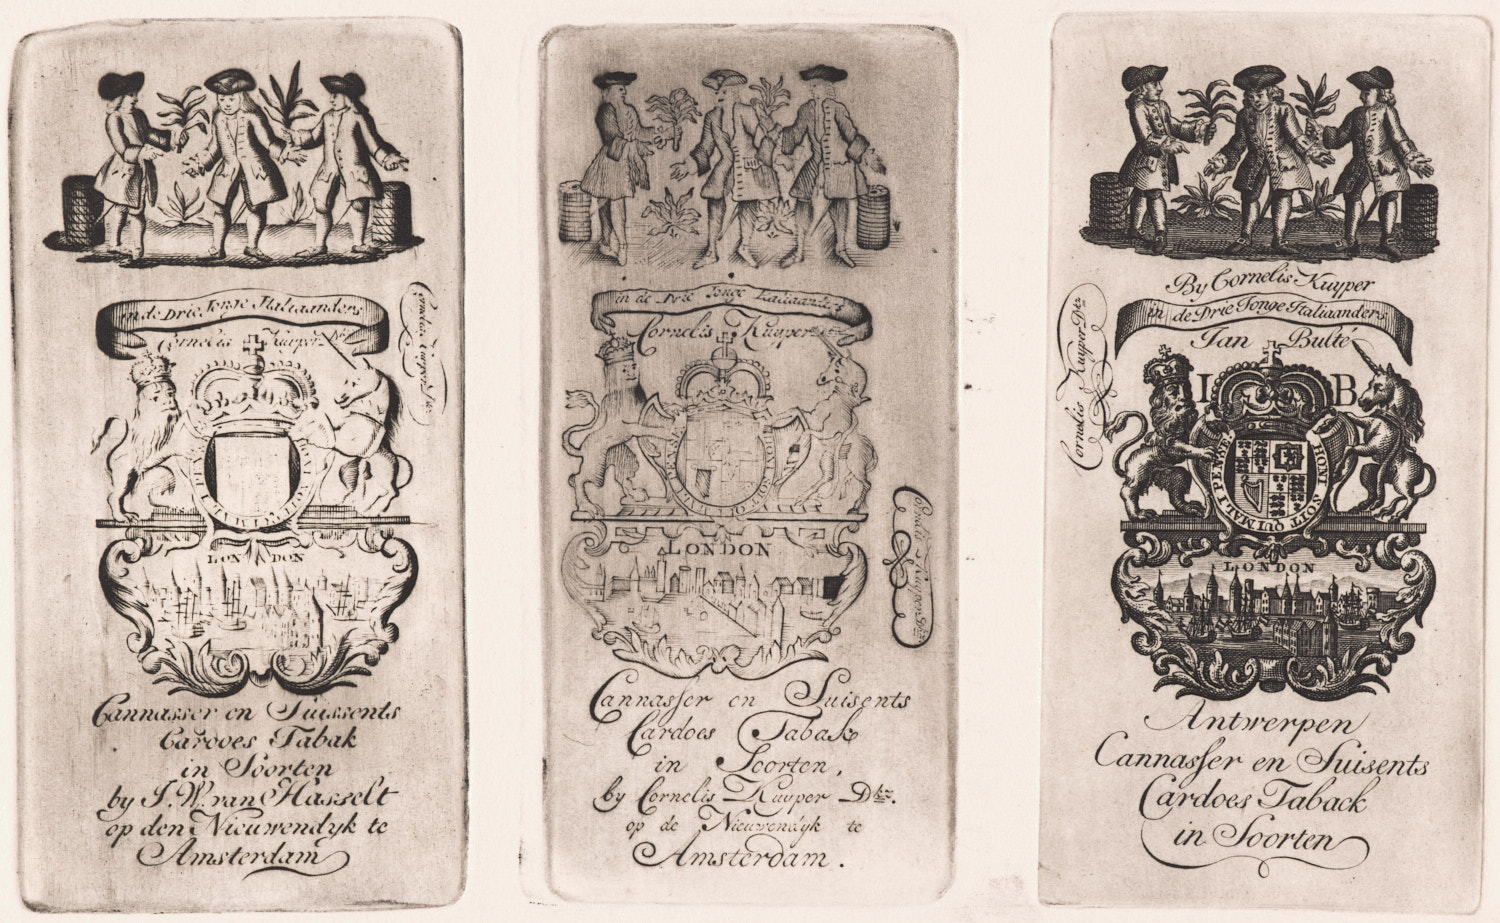 in de Drie Jonge Italiaanders
Cornelis Kuyper Dkr
Cornelis Kuyper Dkr
LONDON
Cannasser en Suissents
Cardoes Tabak
in Soorten
by J. W. van Hasselt
op den Nieuwendyk te
Amsterdam
in de Drie Jonge Italiaanders
Cornelis Kuyper
HONI SOIT QUI MAL Y PENSE
LONDON
Cornelis Kuyper Dkr
Cannasser en Suisents
Cardoes Tabak
in Soorten,
by Cornelis Kuyper Dkr.
op de Nieuwendyk te
Amsterdam.
By Cornelis Kuyper
in de Drie Jonge Italiaanders
Jan Bulté
I B
Cornelis Kuyper Dkr
HONI SOIT QUI MAL Y PENSE
LONDON
Antwerpen
Cannasser en Suisents
Cardoes Taback
in Soorten